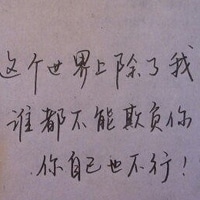 这个世界上除了我
谁都不能欺负你
你自己也不行!